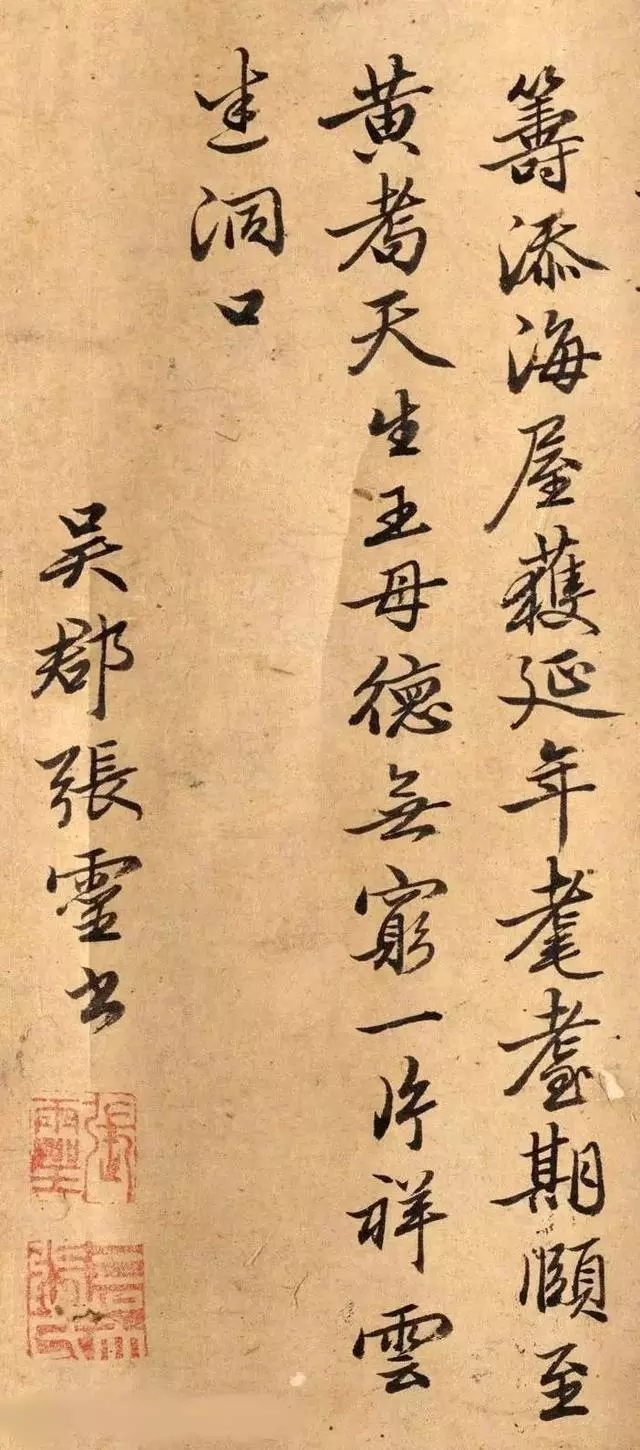 籌添海屋獲延年耄耋期頤至
黄耇天生王母德無窮一片祥雲
迷洞口
吳郡張靈書
張靈